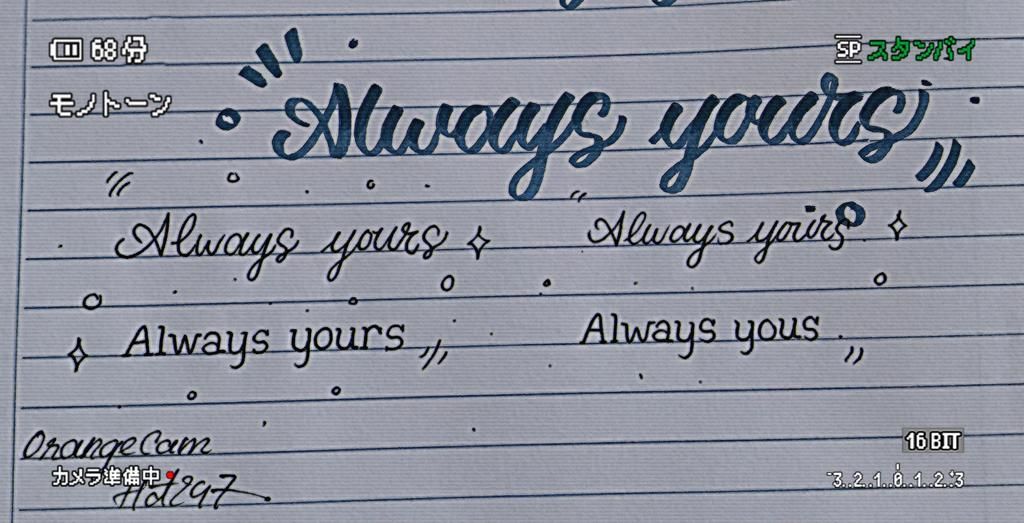 68分
SP スタンバイ
モノトーン
Always yours
Always yours
Always yours
Always yours
Always yous
OrangeCam
16 BIT
カメラ準備中
3..2..1..0..1..2..3